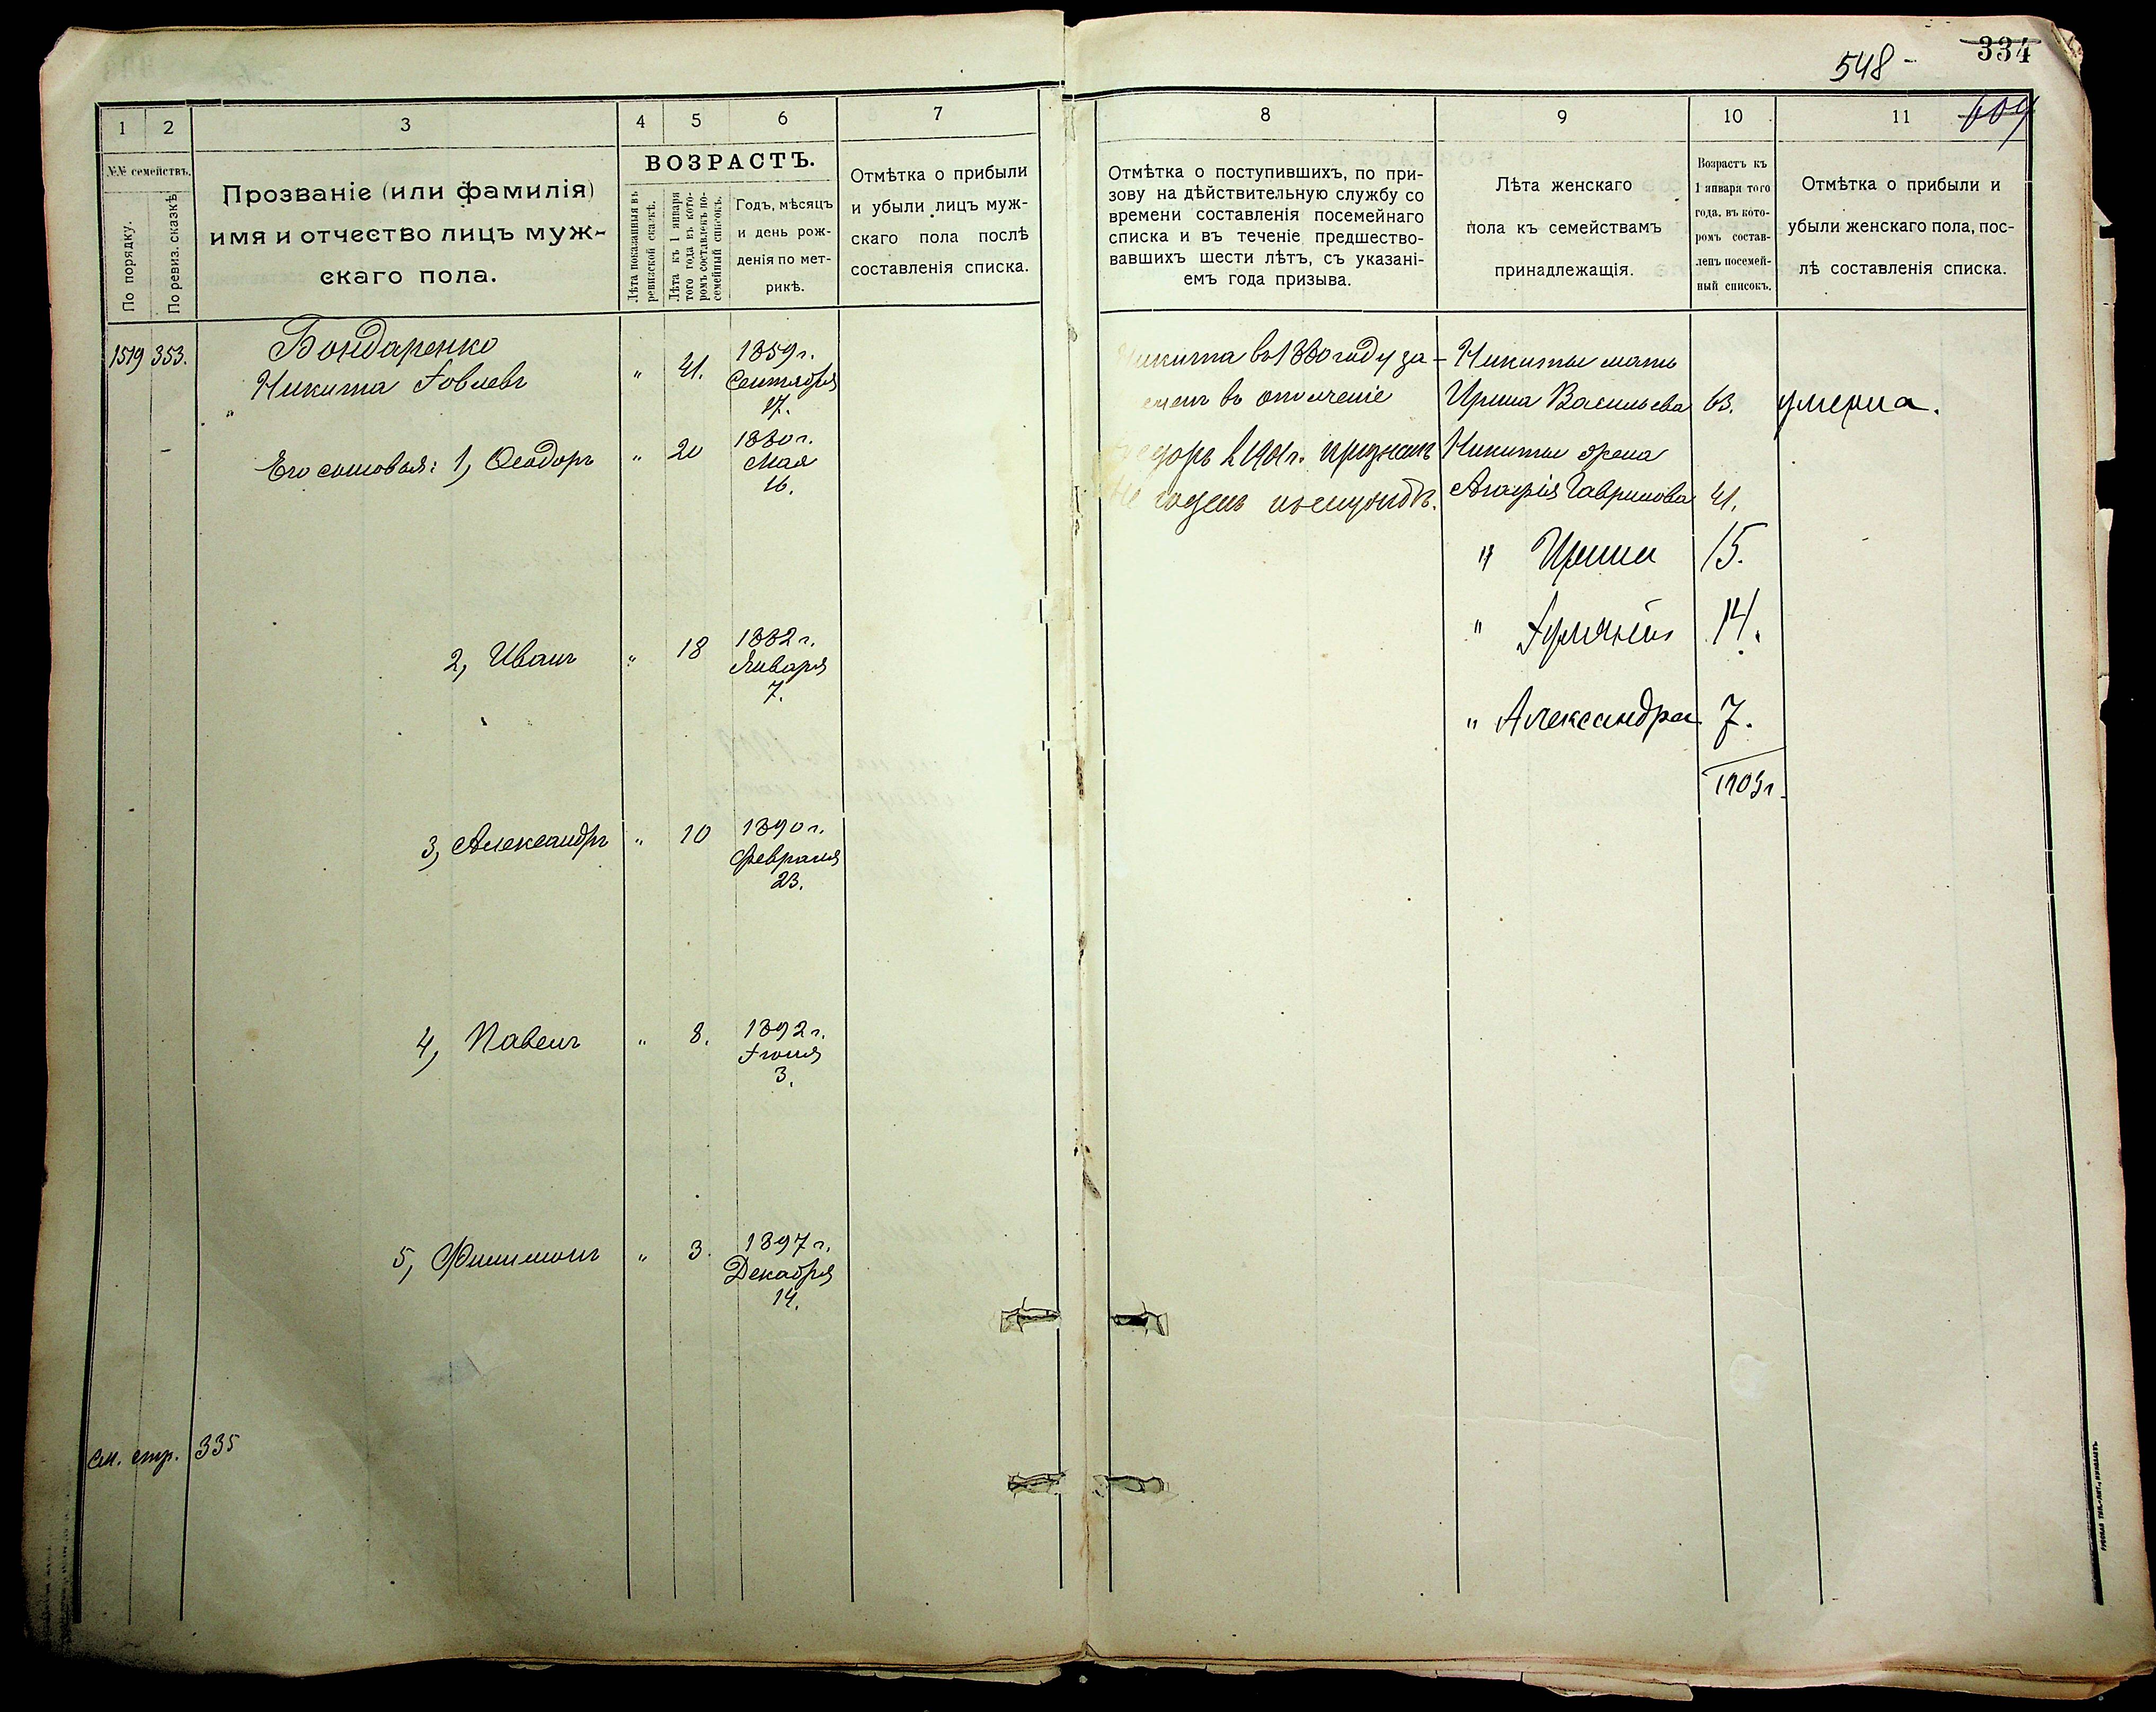 548 - 334
609
1 2 3 4 5 6 7
№№ семействъ.
По порядку.
По ревиз. сказкѣ
Прозваніе (или фамилія)
имя и отчество лицъ муж-
скаго пола.
ВОЗРАСТЪ.
Лѣта показанныя въ
ревизской сказкѣ.
Лѣта къ 1 января
того года въ кото-
ромъ составленъ по-
семейный списокъ.
Годъ, мѣсяцъ
и день рож-
денія по мет-
рикѣ.
Отмѣтка о прибыли
и убыли лицъ муж-
скаго пола послѣ
составленія списка.
1519 353. Бондаренко
Никита Іовлевъ " 41. 1859 г.
Сентября
17.
Его сыновья: 1, Ѳеодоръ " 20 1880 г.
Мая
16.
2, Иванъ " 18 1882 г.
Января
7.
3, Александръ " 10 1890 г.
Февраля
23.
4, Павелъ " 8. 1892 г.
Іюня
3.
5, Филимонъ " 3. 1897 г.
Декабря
14.
см. стр. 335
8 9 10 11
Отмѣтка о поступившихъ, по при-
зову на дѣйствительную службу со
времени составленія посемейнаго
списка и въ теченіе предшество-
вавшихъ шести лѣтъ, съ указані-
емъ года призыва.
Лѣта женскаго
пола къ семействамъ
принадлежащія.
Возрастъ къ
1 января того
года, въ кото-
ромъ состав-
ленъ посемей-
ный списокъ.
Отмѣтка о прибыли и
убыли женскаго пола, пос-
лѣ составленія списка.
Никита въ 1880 году за-
въ ополченіе
Ѳедоръ въ 1901 г. признанъ
Не годенъ
Никиты мать
Ирина Васильева 63. умерла.
Никиты жена
Агафія Гаврилова 41.
" Ирина 15.
" 14.
" Александра 7.
1903 г.